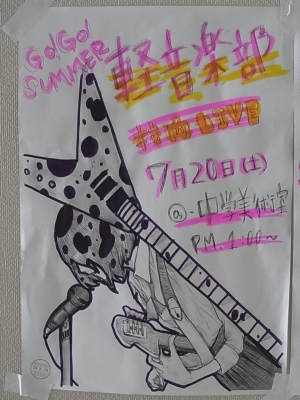 GO!GO!
SUMMER
軽音楽部
校内LIVE
7月20日(土)
@-中学美術室
PM.1:00~